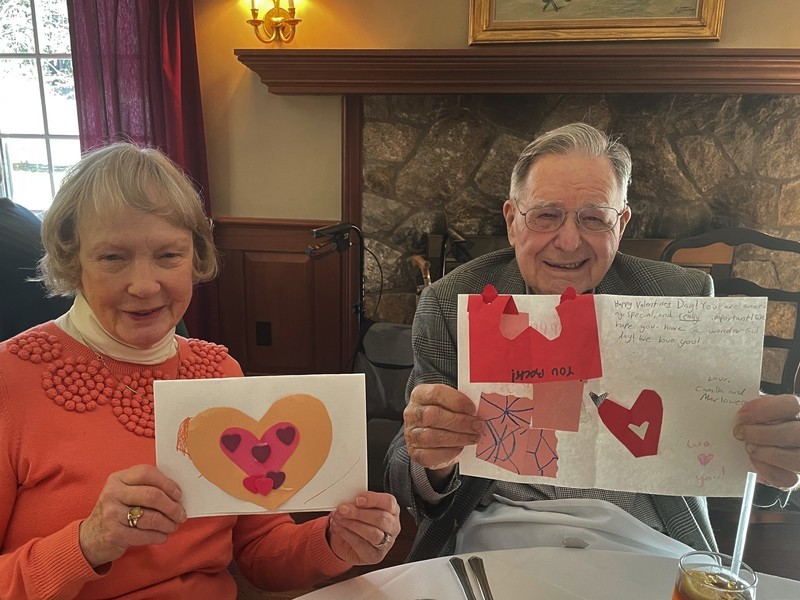 Happy Valentines Day! You are amazin
g, special, and really important! We
hope you have a wonderful
day! We love you!
YOU ROCK!
Love,
Camilla and
Marlowe
We
you!